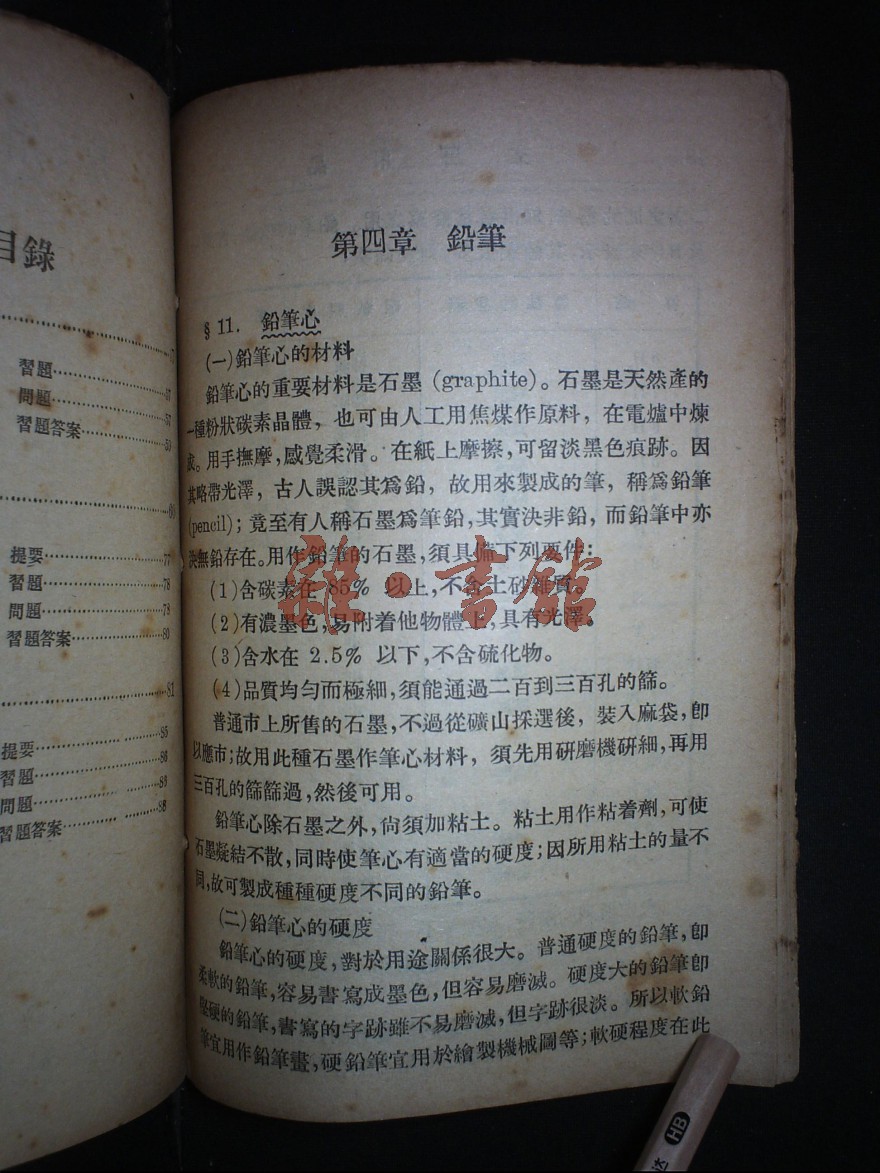 目錄
57
習題 57
問題 57
習題答案 59
60
提要 77
習題 78
問題 78
習題答案 80
81
提要 85
習題 86
問題 88
習題答案 88
第四章 鉛筆
§ 11. 鉛筆心
(一)鉛筆心的材料
鉛筆心的重要材料是石墨 (graphite)。石墨是天然產的
一種粉狀碳素晶體，也可由人工用焦煤作原料，在電爐中煉
成。用手撫摩，感覺柔滑。在紙上摩擦，可留淡黑色痕跡。因
其略帶光澤，古人誤認其爲鉛，故用來製成的筆，稱爲鉛筆
(pencil)；竟至有人稱石墨爲筆鉛，其實決非鉛，而鉛筆中亦
決無鉛存在。用作鉛筆的石墨，須具備下列要件：
(1)含碳素在 85% 以上，不含土砂雜質。
(2)有濃墨色，易附着他物體上，具有光澤。
(3)含水在 2.5% 以下，不含硫化物。
(4)品質均勻而極細，須能通過二百到三百孔的篩。
普通市上所售的石墨，不過從礦山採選後，裝入麻袋，卽
以應市；故用此種石墨作筆心材料，須先用硏磨機硏細，再用
三百孔的篩篩過，然後可用。
鉛筆心除石墨之外，尙須加粘土。粘土用作粘着劑，可使
石墨凝結不散，同時使筆心有適當的硬度；因所用粘土的量不
同，故可製成種種硬度不同的鉛筆。
(二)鉛筆心的硬度
鉛筆心的硬度，對於用途關係很大。普通硬度的鉛筆，卽
柔軟的鉛筆，容易書寫成墨色，但容易磨滅。硬度大的鉛筆卽
堅硬的鉛筆，書寫的字跡雖不易磨滅，但字跡很淡。所以軟鉛
筆宜用作鉛筆畫，硬鉛筆宜用於繪製機械圖等；軟硬程度在此
雜·書館
HB